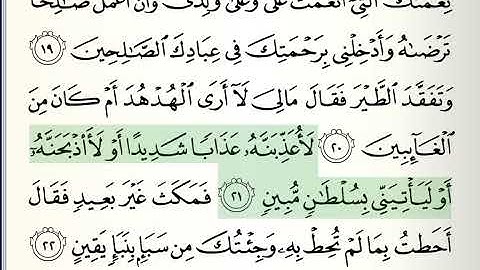 نِعْمَتَكَ ٱلَّتِىٓ أَنْعَمْتَ عَلَىَّ وَعَلَىٰ وَٰلِدَىَّ وَأَنْ أَعْمَلَ صَٰلِحًا
تَرْضَىٰهُ وَأَدْخِلْنِى بِرَحْمَتِكَ فِى عِبَادِكَ ٱلصَّٰلِحِينَ ١٩
وَتَفَقَّدَ ٱلطَّيْرَ فَقَالَ مَالِىَ لَآ أَرَى ٱلْهُدْهُدَ أَمْ كَانَ مِنَ
ٱلْغَآئِبِينَ ٢٠ لَأُعَذِّبَنَّهُۥ عَذَابًا شَدِيدًا أَوْ لَأَا۟ذْبَحَنَّهُۥٓ
أَوْ لَيَأْتِيَنِّى بِسُلْطَٰنٍ مُّبِينٍ ٢١ فَمَكَثَ غَيْرَ بَعِيدٍ فَقَالَ
أَحَطتُ بِمَا لَمْ تُحِطْ بِهِۦ وَجِئْتُكَ مِن سَبَإٍۭ بِنَبَإٍ يَقِينٍ ٢٢